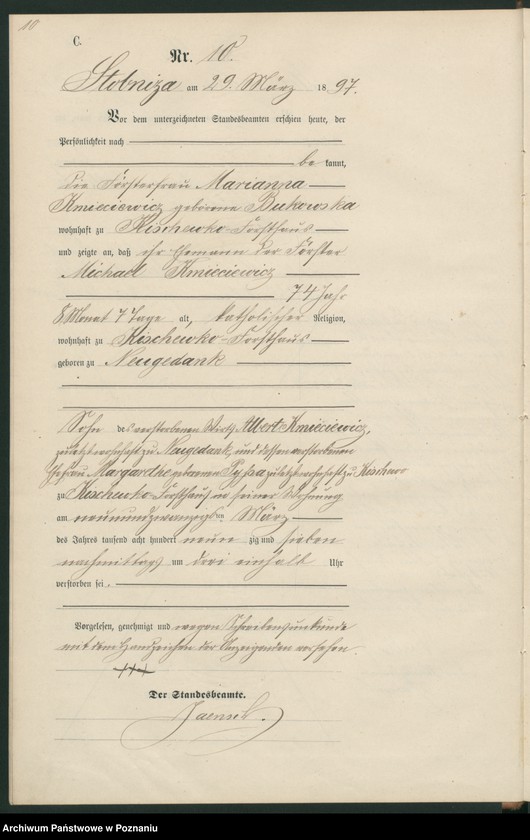 10
C.
Nr. 10.
Stobniza am 29. März 1897.
Vor dem unterzeichneten Standesbeamten erschien heute, der
Persönlichkeit nach
bekannt,
die Försterfrau Marianna
Kmieciewicz geborene Bukowska
wohnhaft zu Kischewko-Forsthaus
und zeigte an, daß ihr Ehemann der Förster
Michael Kmieciewicz
74 Jahr
8 Monat 7 Tage alt, katholischer Religion,
wohnhaft zu Kischewko-Forsthaus
geboren zu Neugedank
Sohn des verstorbenen Wirths Albert Kmieciewicz,
zuletzt wohnhaft zu Neugedank, und dessen verstorbenen
Ehefrau Margarethe geborenen zuletzt wohnhaft zu
zu Kischewko-Forsthaus in seiner Wohnung
am neunundzwanzigsten März
des Jahres tausend acht hundert neunzig und sieben
nachmittags um drei einhalb Uhr
verstorben sei.
Vorgelesen, genehmigt und wegen Schreibensunkunde
mit dem Handzeichen der Anzeigenden versehen.
+++
Der Standesbeamte.
Jaensch.
Archiwum Państwowe w Poznaniu